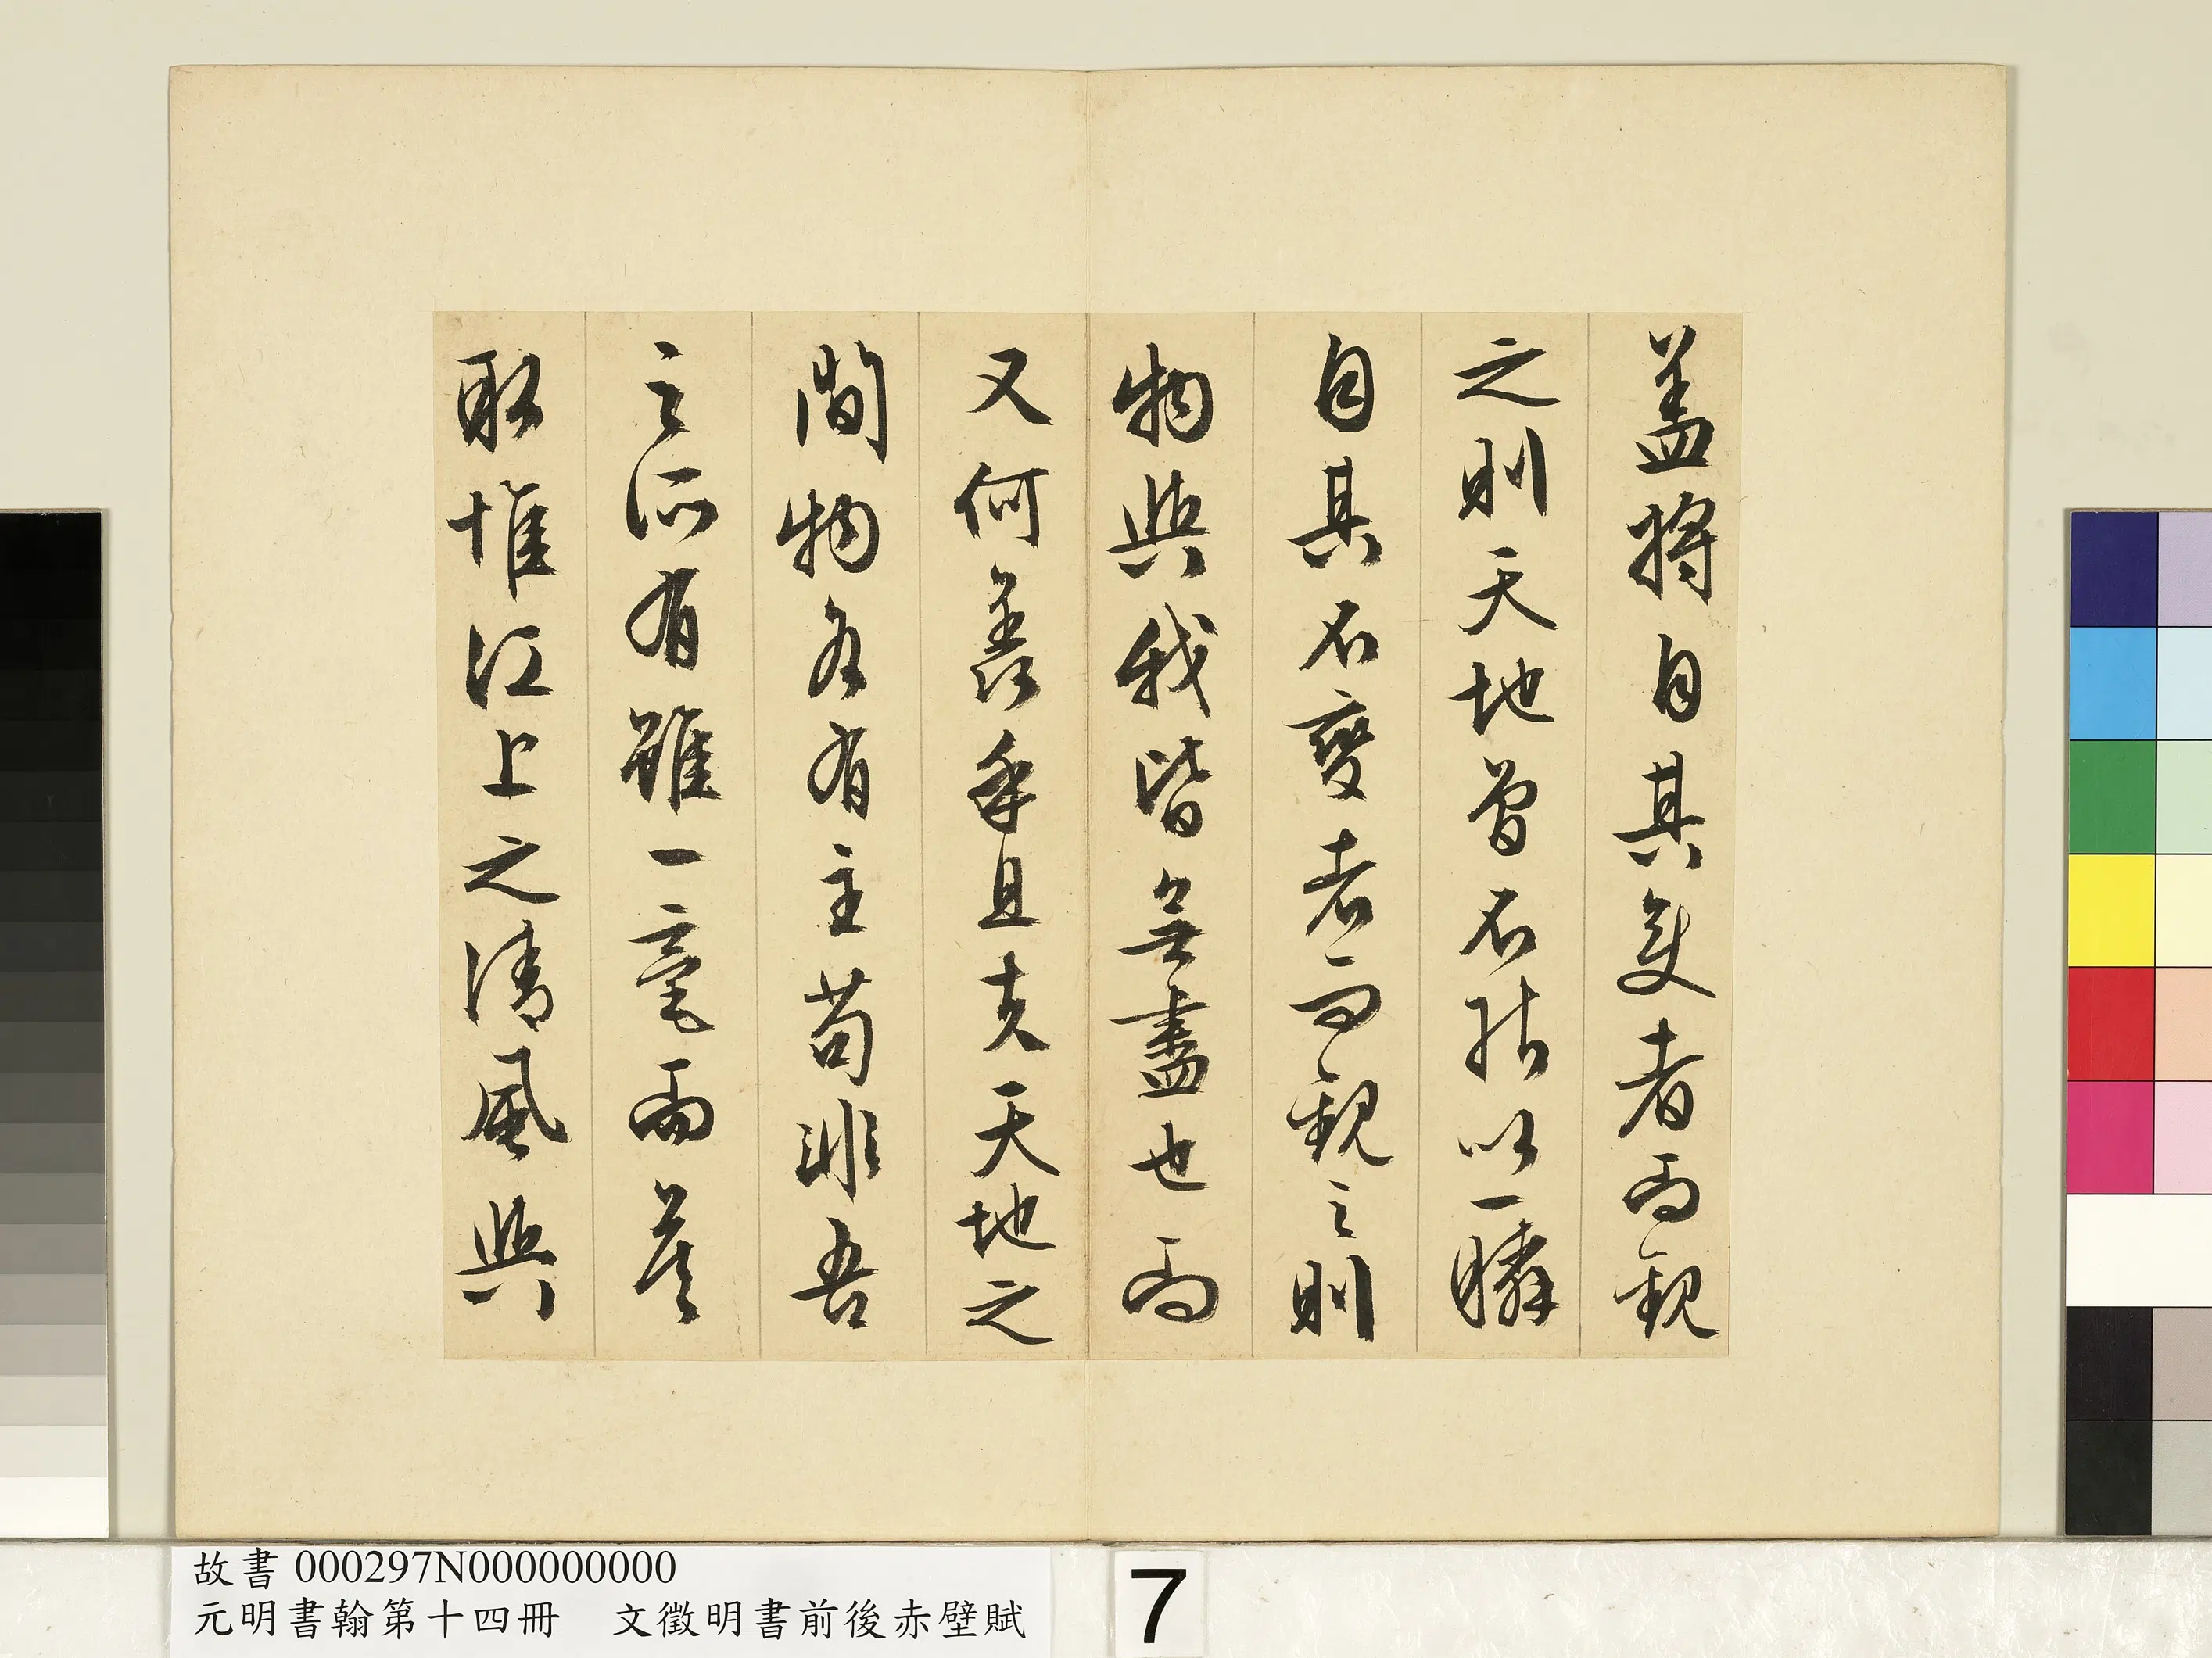 蓋將自其變者而觀
之則天地曾不能以一瞬
自其不變者而觀之則
物與我皆無盡也而
又何羨乎且夫天地之
間物各有主苟非吾
之所有雖一毫而莫
取惟江上之清風與
故書 000297N000000000
元明書翰第十四冊 文徵明書前後赤壁賦
7